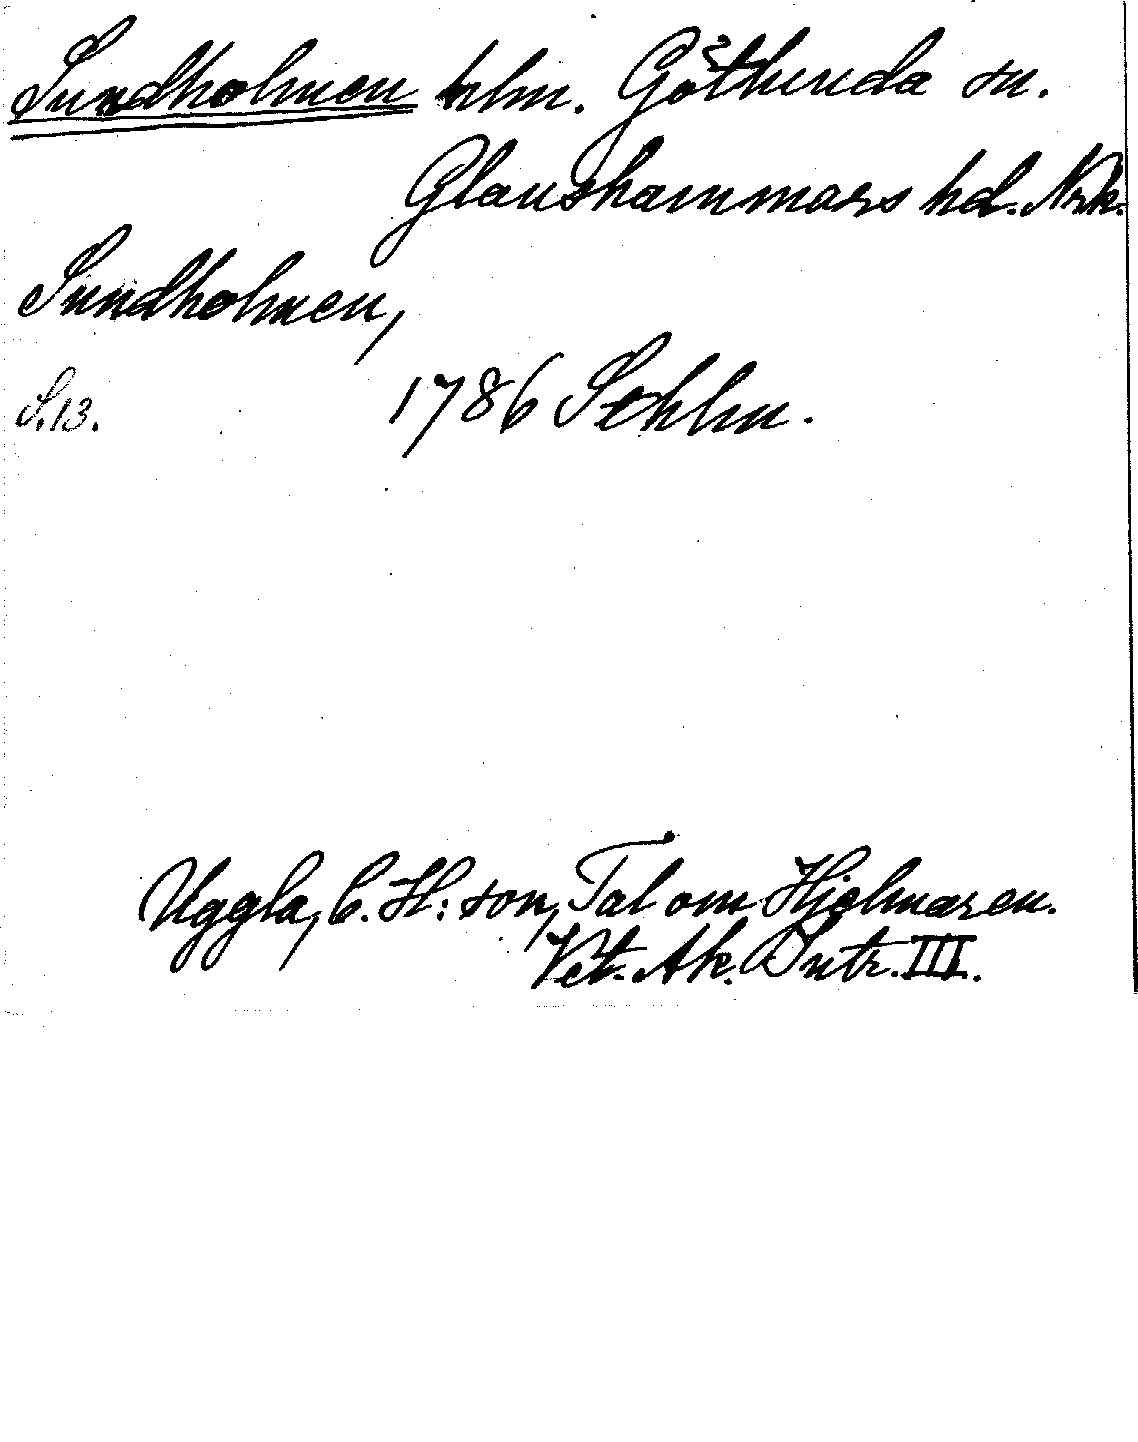 Sundholmen hlm. Götlunda sn.
Glanshammars hd. Nrk.
Sundholmen,
S. 13. 1786 Sthlm.
Uggla, C. H:son, Tal om Hjelmaren.
Vet. Ak. Intr. III.